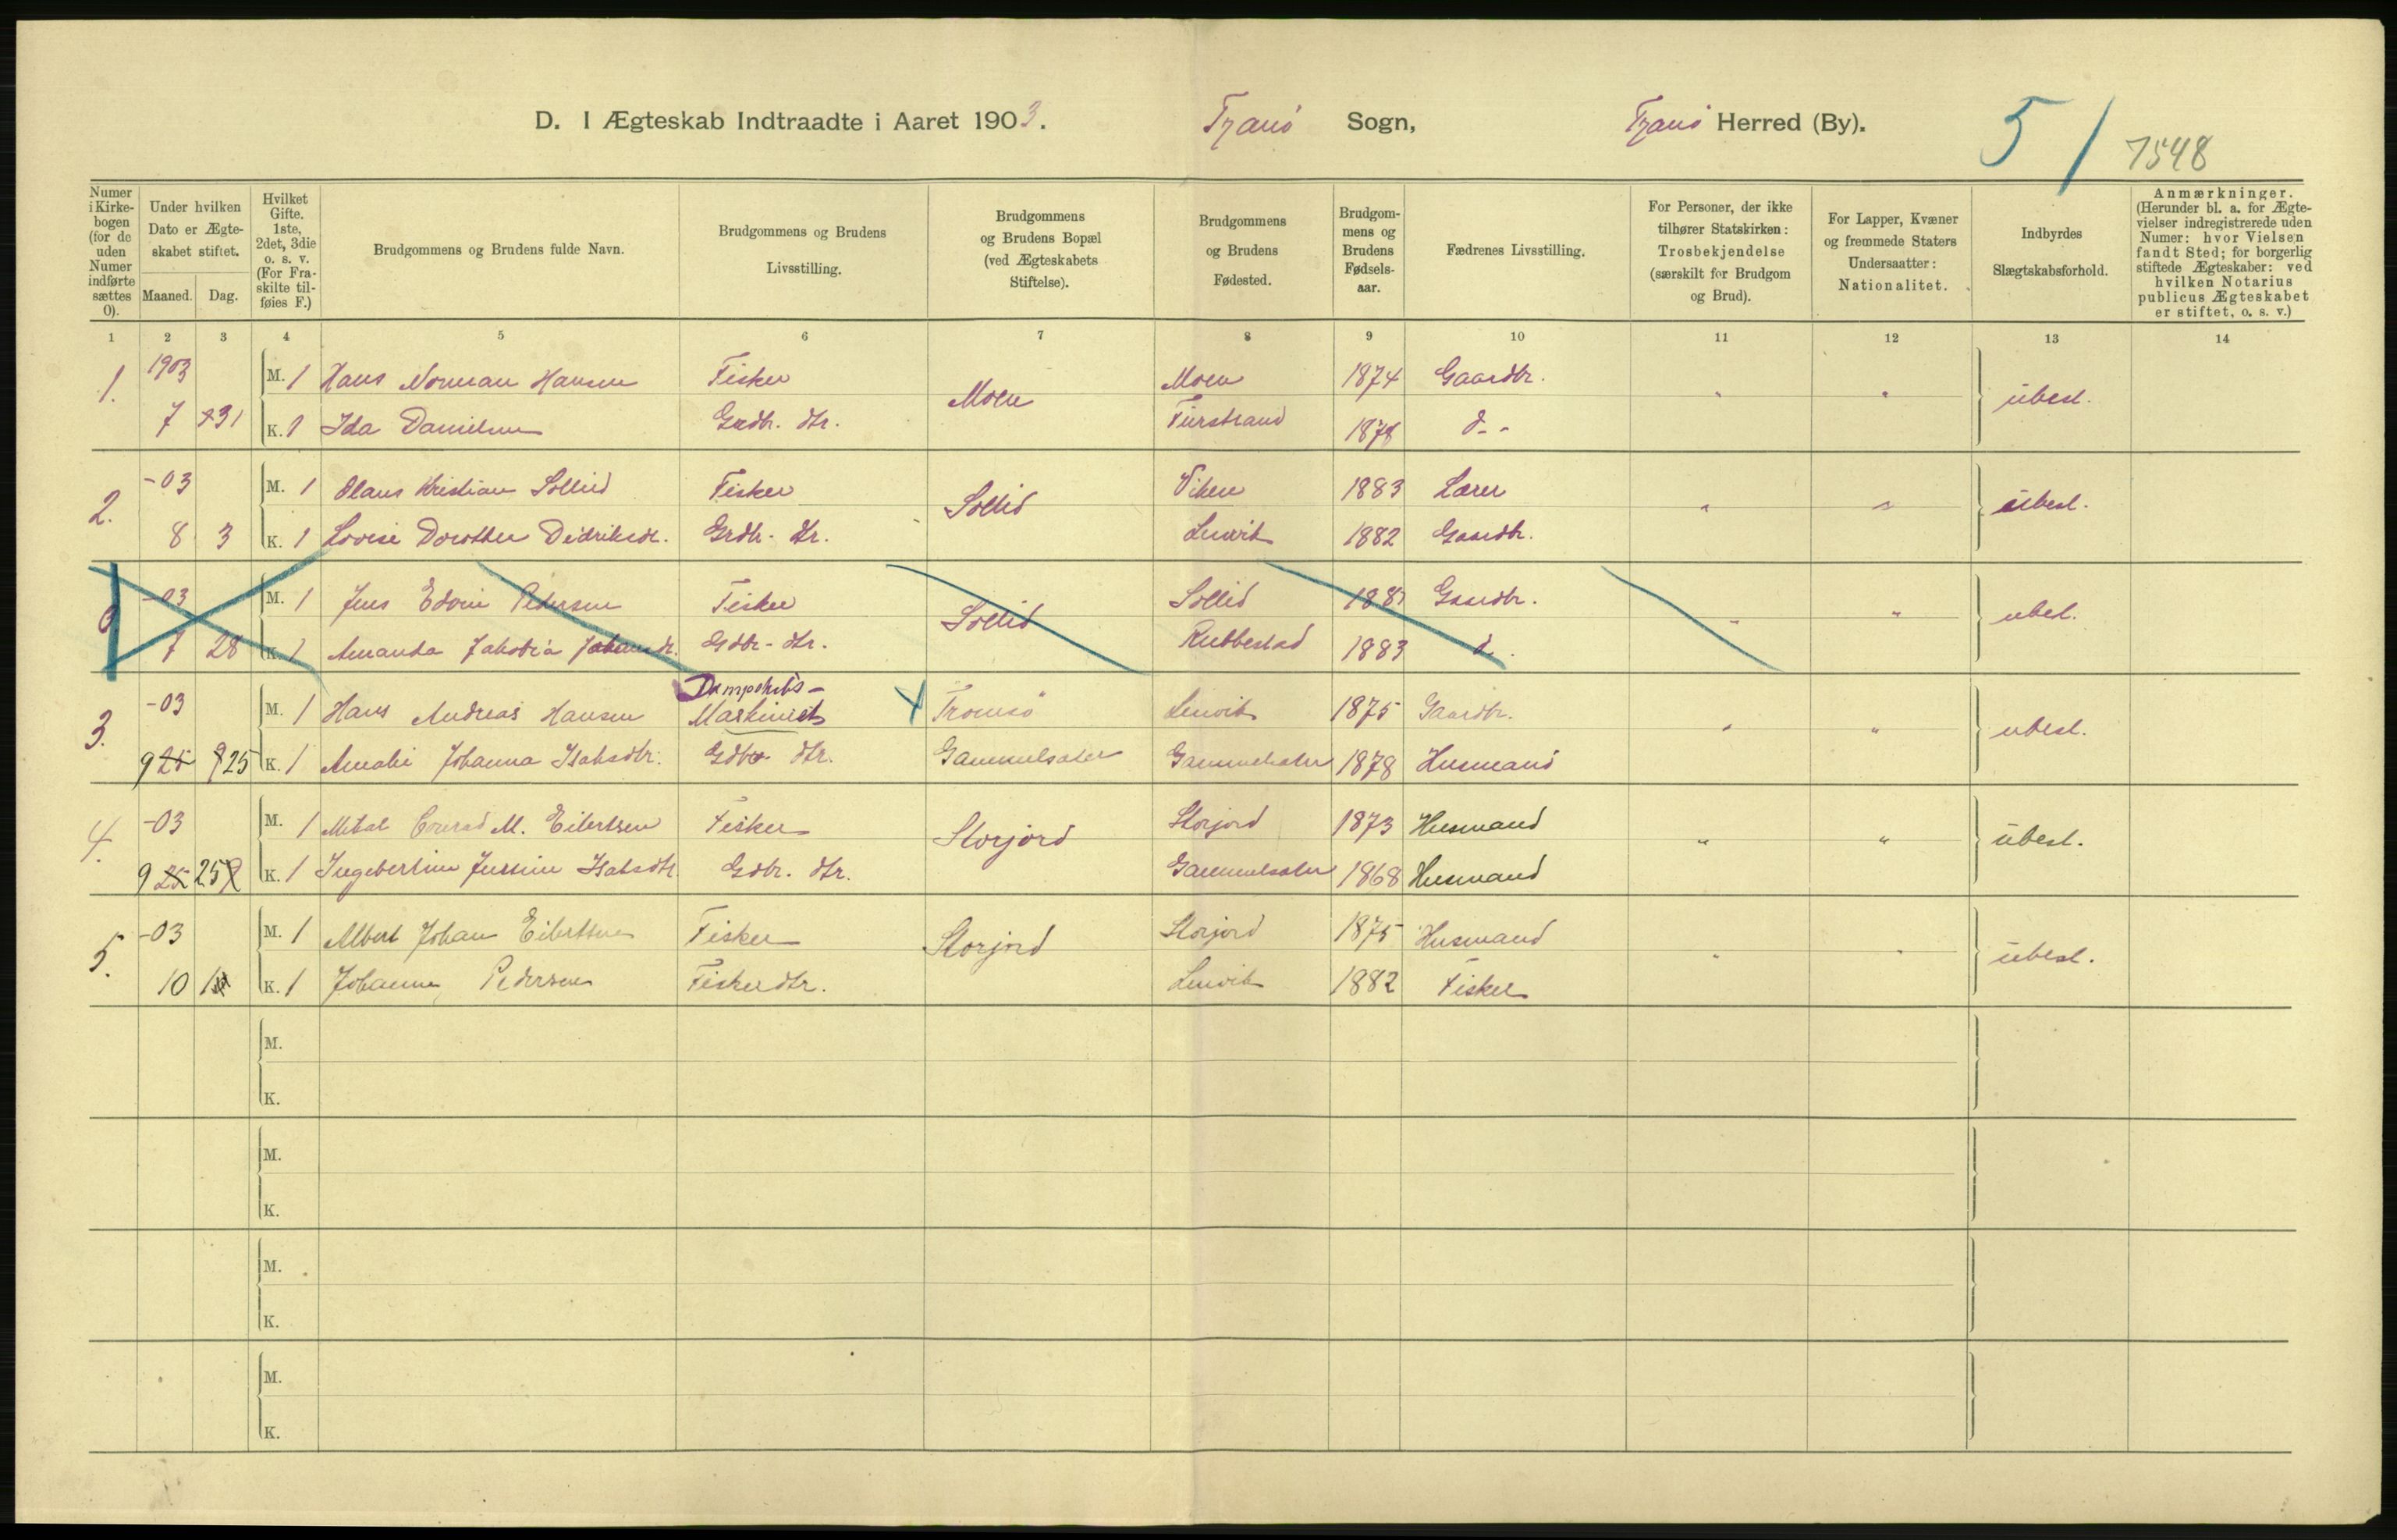 D. I Ægteskab Indtraadte i Aaret 1903. Tranö Sogn, Tranö Herred (By). 5 / 7548
Numer i Kirkebogen (for de uden Numer indførte sættes 0).
Under hvilken Dato er Ægteskabet stiftet.
Maaned. Dag.
Hvilket Gifte. 1ste, 2det, 3die o. s. v. (For Fraskilte tilføies F.)
Brudgommens og Brudens fulde Navn.
Brudgommens og Brudens Livsstilling.
Brudgommens og Brudens Bopæl (ved Ægteskabets Stiftelse).
Brudgommens og Brudens Fødested.
Brudgommens og Brudens Fødselsaar.
Fædrenes Livsstilling.
For Personer, der ikke tilhører Statskirken: Trosbekjendelse (særskilt for Brudgom og Brud).
For Lapper, Kvæner og fremmede Staters Undersaatter: Nationalitet.
Indbyrdes Slægtskabsforhold.
Anmærkninger. (Herunder bl. a. for Ægtevielser indregistrerede uden Numer: hvor Vielsen fandt Sted; for borgerlig stiftede Ægteskaber: ved hvilken Notarius publicus Ægteskabet er stiftet, o. s. v.)
1 2 3 4 5 6 7 8 9 10 11 12 13 14
1. 1903 M. 1 Hans Norman Hansen Fisker Moen Moen 1874 Gaardbr. " " ubesl.
7 31 K. 1 Ida Danielsen Grdbr. dtr. Furstrand 1878 d--
2. -03 M. 1 Olaus Kristian Sollid Fisker Sollid Viken 1883 Lærer " " ubesl.
8 3 K. 1 Lovise Dorothea Didriksdr. Grdbr. dtr. Lenvik 1882 Gaardbr.
-03 M. 1 Jens Edvin Pedersen Fisker Sollid Sollid 1881 Gaardbr. " " ubesl.
7 28 K. 1 Amanda Jakobia Johansdr. Gdbr. dtr. Rubbestad 1883 d.
3. -03 M. 1 Hans Andreas Hansen Dampskibs- Maskinist Tromsö Lenvik 1875 Gaardbr. " " ubesl.
9 25 K. 1 Amalie Johanna Isaksdtr. Gdbr. dtr. Gammelsæter Gammelsæter 1878 Husmand
4. -03 M. 1 Mikal Conrad M. Eilertsen Fisker Storjord Storjord 1873 Husmand " " ubesl.
9 25 K. 1 Ingebertine Jensine Isaksdtr. Gdbr. dtr. Gammelsæter 1868 Husmand
5. -03 M. 1 Albert Johan Eilertsen Fisker Storjord Storjord 1875 Husmand " " ubesl.
10 K. 1 Johanna Pedersen Fisker dtr. Lenvik 1882 Fisker
M.
K.
M.
K.
M.
K.
M.
K.